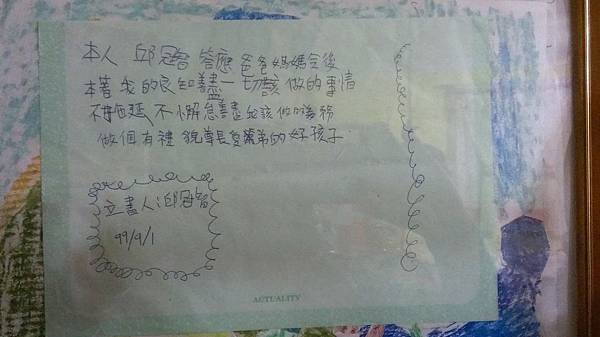 本人 邱冠智 答應爸爸媽媽今後
本著我的良知盡一切該做的事情
不拖延不懈怠善盡我該做的義務
做個有禮貌尊長愛弟的好孩子
立書人:邱冠智
99/9/1
ACTUALITY